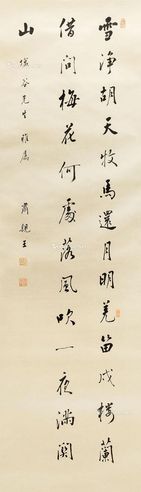 雪淨胡天牧馬還月明羌笛戍樓
借問梅花何處落風吹一夜滿關
山
谷先生雅屬 肅親王